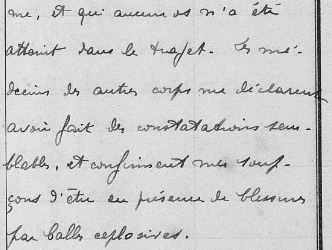 me, et qui aucun os n'a été
atteint dans le trajet. Les mé-
decins des autres corps me déclarent
avoir fait des constatations sem-
blables, et confirment mes soup-
çons d'être en présence de blessures
par balles explosives.